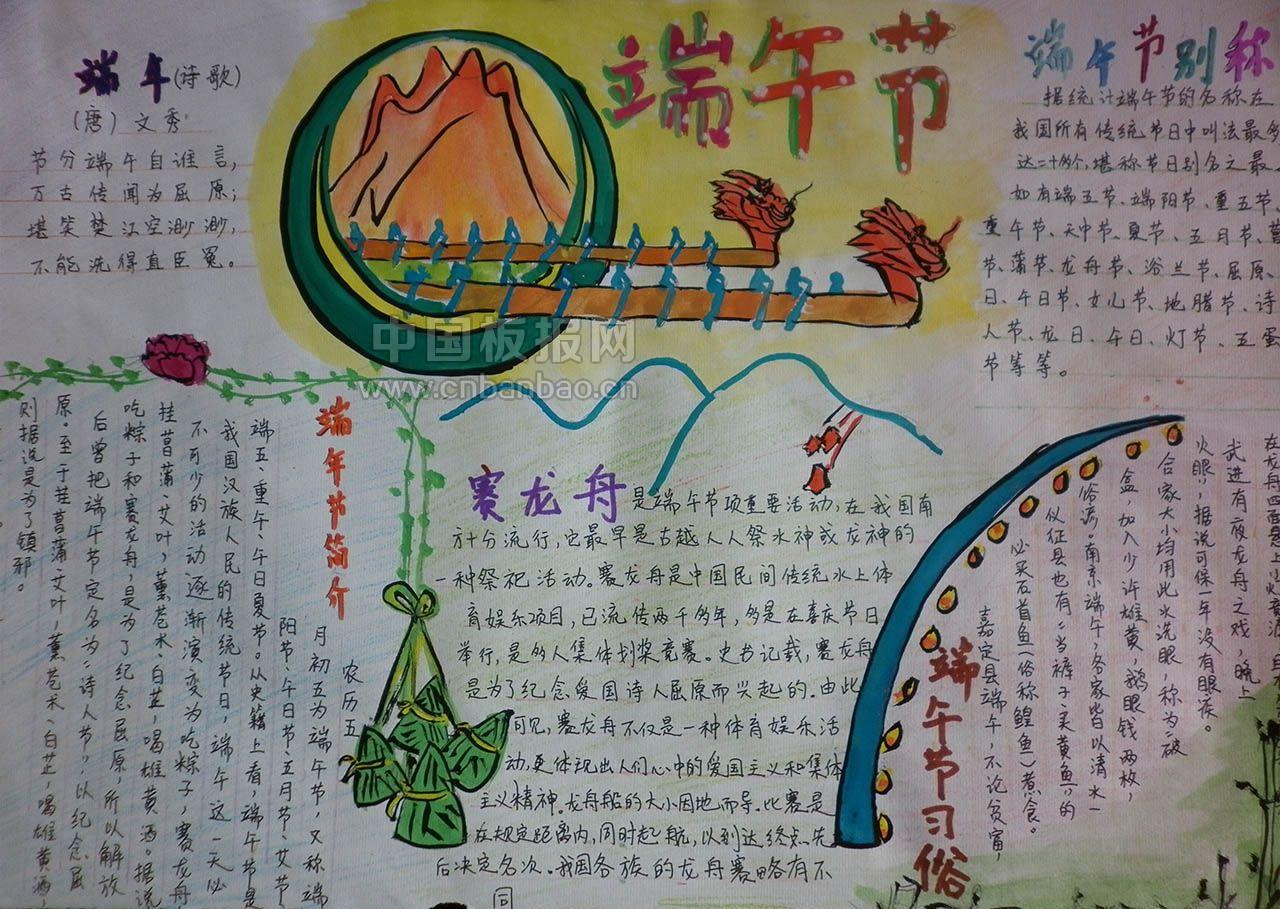 端午节
端午(诗歌)
(唐) 文秀
节分端午自谁言,
万古传闻为屈原;
堪笑楚江空渺渺,
不能洗得直臣冤。
端午节别称
据统计端午节的名称在
我国所有传统节日中叫法最多
达二十多个,堪称节日别名之最。
如有端五节、端阳节、重五节、
重午节、天中节、夏节、五月节、菖
节、蒲节、龙舟节、浴兰节、屈原、
日、午日节、女儿节、地腊节、诗
人节、龙日、午日、灯节、五蛋
节等等。
中国板报网
www.cnbanbao.cn
端午节简介
农历五
月初五为端午节,又称端
阳节、午日节、五月节、艾节、
端五、重午、午日夏节。从史籍上看,端午节是
我国汉族人民的传统节日,端午这一天必
不可少的活动逐渐演变为吃粽子,赛龙舟
挂菖蒲、艾叶,薰苍术、白芷,喝雄黄酒。据说
吃粽子和赛龙舟,是为了纪念屈原,所以解放
后曾把端午节定名为:诗人节,以纪念屈
原。至于挂菖蒲艾叶,薰苍术、白芷,喝雄黄酒,
则据说是为了镇邪。
赛龙舟是端午节项重要活动,在我国南
方十分流行,它最早是古越人人祭水神或龙神的
一种祭祀活动。赛龙舟是中国民间传统水上体
育娱乐项目,已流传两千多年,多是在喜庆节日
举行,是多人集体划桨竞赛。史书记载,赛龙舟
是为了纪念爱国诗人屈原而兴起的。由此
可见,赛龙舟不仅是一种体育娱乐活
动,更体现出人们心中的爱国主义和集体
主义精神。龙舟船的大小因地而导。比赛是
在规定距离内,同时起航,以到达终点先
后决定名次。我国各族的龙舟赛略各有不
同
端午节习俗
嘉定县端午,不论贫富,
必买石首鱼(俗称鳇鱼)煮食。
仪征县也有:当裤子买黄鱼,的
俗谚。南京端午,各家皆以清水一
盒加入少许雄黄,鹅眼钱两枚,
合家大小均用此水洗眼,称为:破
火眼,据说可保一年没有眼疾。
武进有夜龙舟之戏,晚上